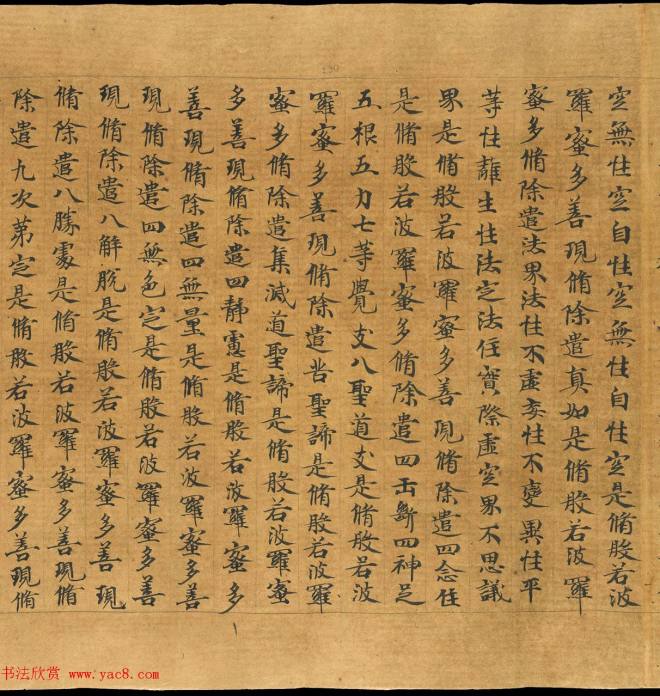 空無性空自性空無性自性空是脩般若波
羅蜜多善現脩除遣真如是脩般若波羅
蜜多脩除遣法界法性不虛妄性不變異性平
等性離生性法定法住實際虛空界不思議
界是脩般若波羅蜜多善現脩除遣四念住
是脩般若波羅蜜多脩除遣四正斷四神足
五根五力七等覺支八聖道支是脩般若波
羅蜜多善現脩除遣苦聖諦是脩般若波羅
蜜多脩除遣集滅道聖諦是脩般若波羅蜜
多善現脩除遣四靜慮是脩般若波羅蜜多
善現脩除遣四無量是脩般若波羅蜜多善
現脩除遣四無色定是脩般若波羅蜜多善
現脩除遣八解脫是脩般若波羅蜜多善現
脩除遣八勝處是脩般若波羅蜜多善現脩
除遣九次第定是脩般若波羅蜜多善現脩
书法欣赏 www.yac8.com